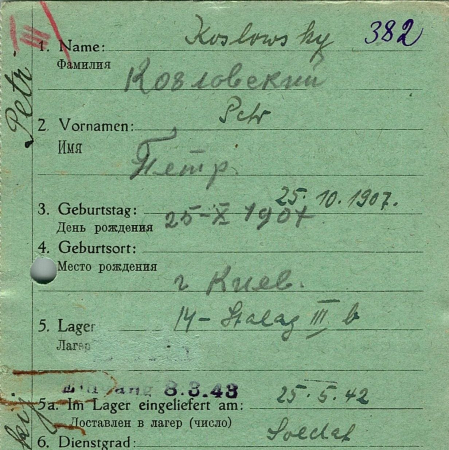 III
Petr
1. Name: Koslowsky 382
Фамилия
Козловский
2. Vornamen: Petr
Имя
Петр.
25.10.1907.
3. Geburtstag: 25-X 1907
День рождения
4. Geburtsort:
Место рождения
г Киев.
5. Lager 14- Stalag III b
Лагер
8.3.43
5a. Im Lager eingeliefert am: 25.5.42
Доставлен в лагер (число)
6. Dienstgrad: Soldat